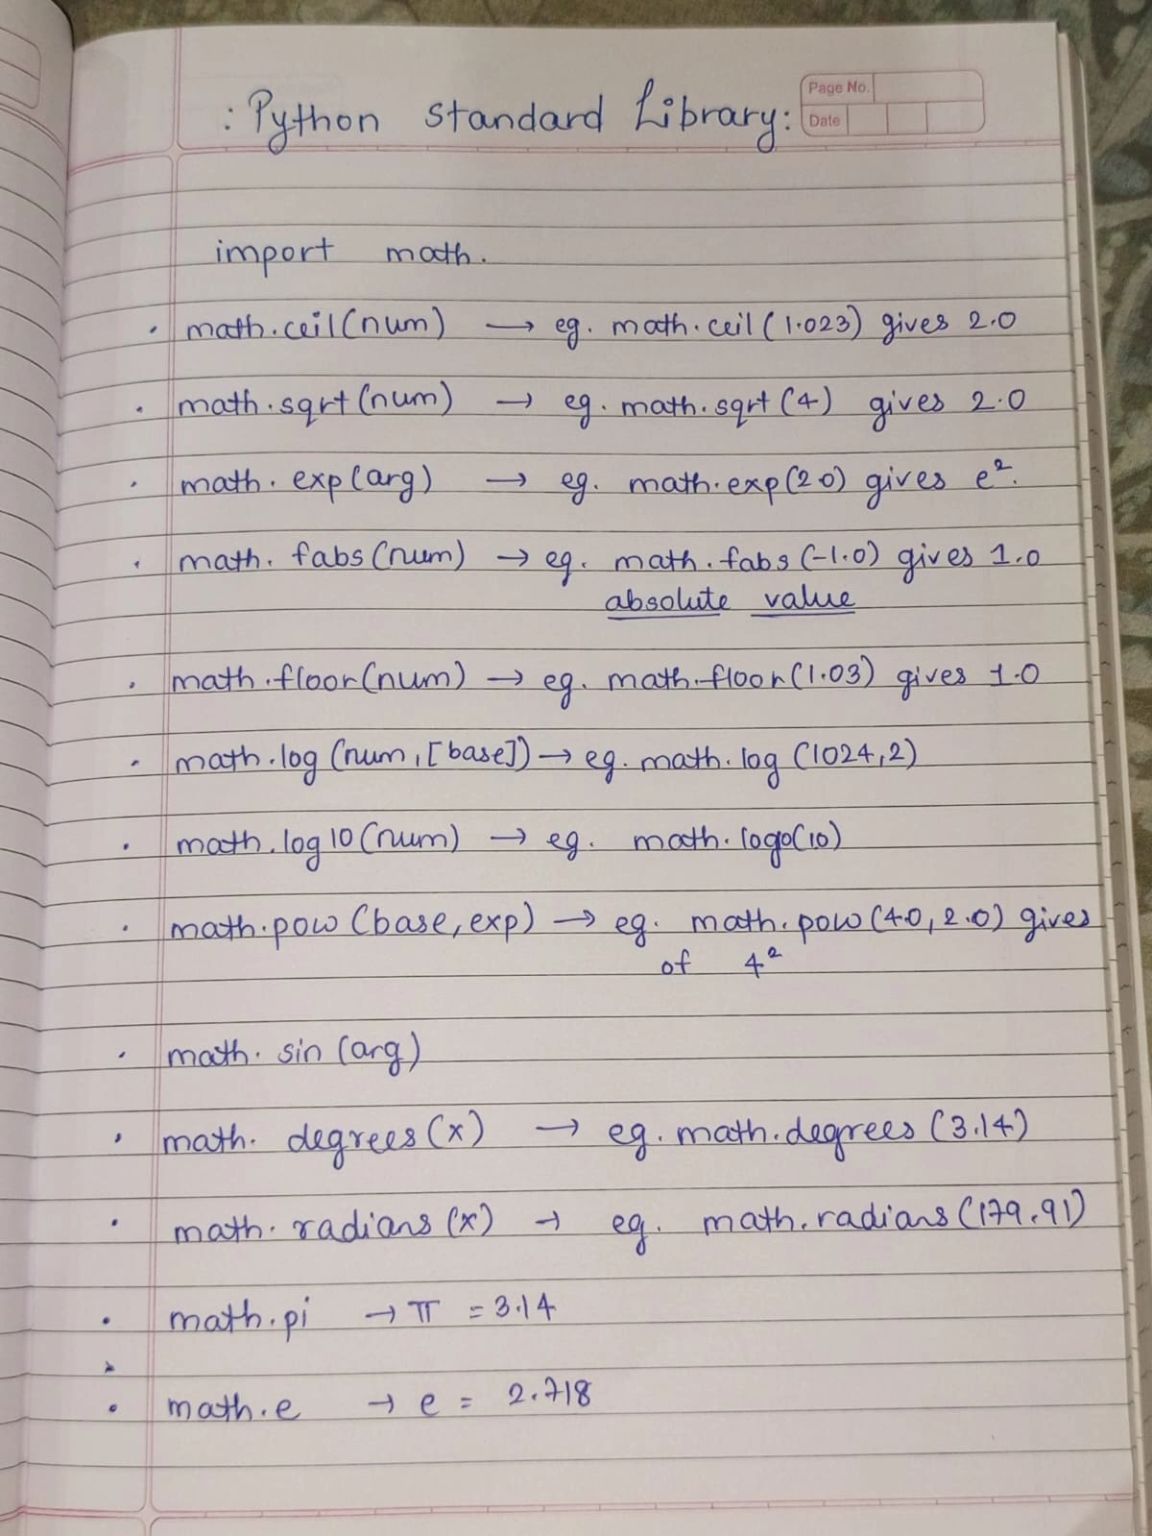 : Python Standard Library:
Page No.
Date
import math.
• math.ceil(num) → eg. math.ceil(1.023) gives 2.0
• math.sqrt(num) → eg. math.sqrt(4) gives 2.0
• math.exp(arg) → eg. math.exp(2.0) gives e².
• math.fabs(num) → eg. math.fabs(-1.0) gives 1.0
absolute value
• math.floor(num) → eg. math.floor(1.03) gives 1.0
• math.log(num,[base]) → eg. math.log(1024,2)
• math.log10(num) → eg. math.logo(10)
• math.pow(base,exp) → eg. math.pow(4.0,2.0) gives
of 4²
• math.sin(arg)
• math.degrees(x) → eg. math.degrees(3.14)
• math.radians(x) → eg. math.radians(179.91)
• math.pi → π = 3.14
• math.e → e = 2.718